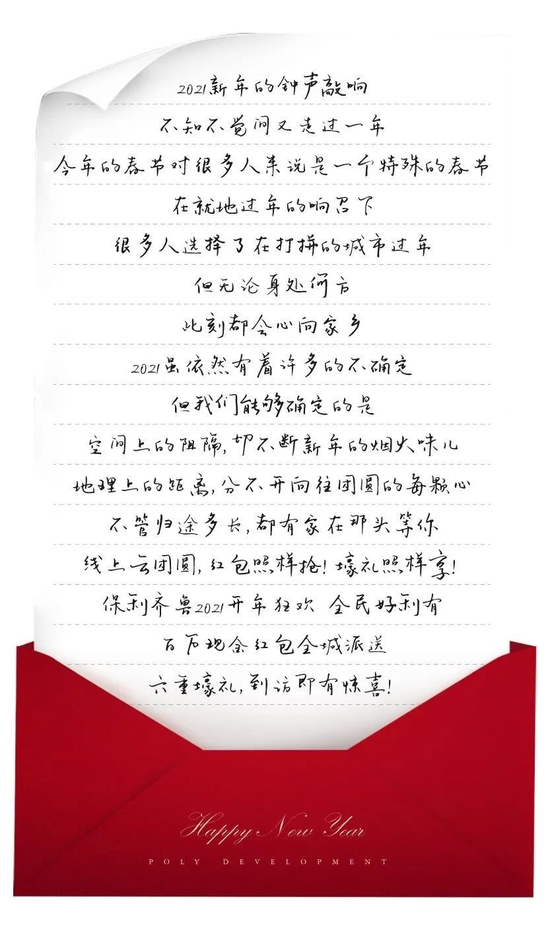 2021新年的钟声敲响
不知不觉间又走过一年
今年的春节对很多人来说是一个特殊的春节
在就地过年的响召下
很多人选择了在打拼的城市过年
但无论身处何方
此刻都会心向家乡
2021虽依然有着许多的不确定
但我们能够确定的是
空间上的阻隔,切不断新年的烟火味儿
地理上的距离,分不开向往团圆的每颗心
不管归途多长,都有家在那头等你
线上云团圆,红包照样抢!壕礼照样享!
保利齐鲁2021开年狂欢 全民好利有
百万现金红包全城派送
六重壕礼,到访即有惊喜!
Happy New Year
POLY DEVELOPMENT